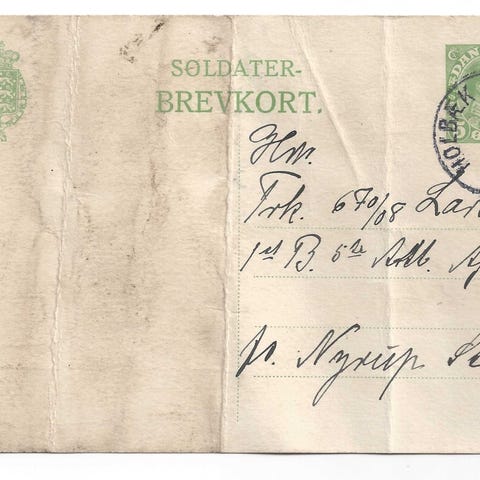 SOLDATER-
BREVKORT.
DAN
HOLBÆK
Hr.
Trk. 670/08 Lar
1st B. 5te Artl. A
pr. Nyrup